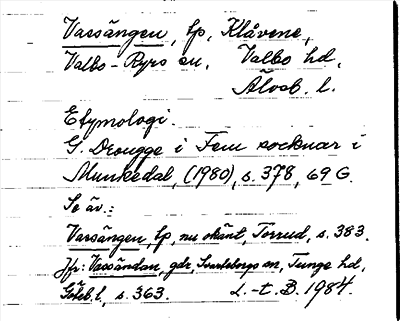 Vassängen, lp, Klåvene,
Valbo-Ryrs sn, Valbo hd,
Älvsb. l.
Etymologi.
G. Drougge i Fem socknar i
Munkedal, (1980), s. 378, 69 G.
Se äv.:
Vassängen, lp, nu okänt, Torrud, s. 383.
Jfr: Vassändan, gdr, Svarteborgs sn, Tunge hd,
Göteb. l., s. 363. L.-t. B. 1984.